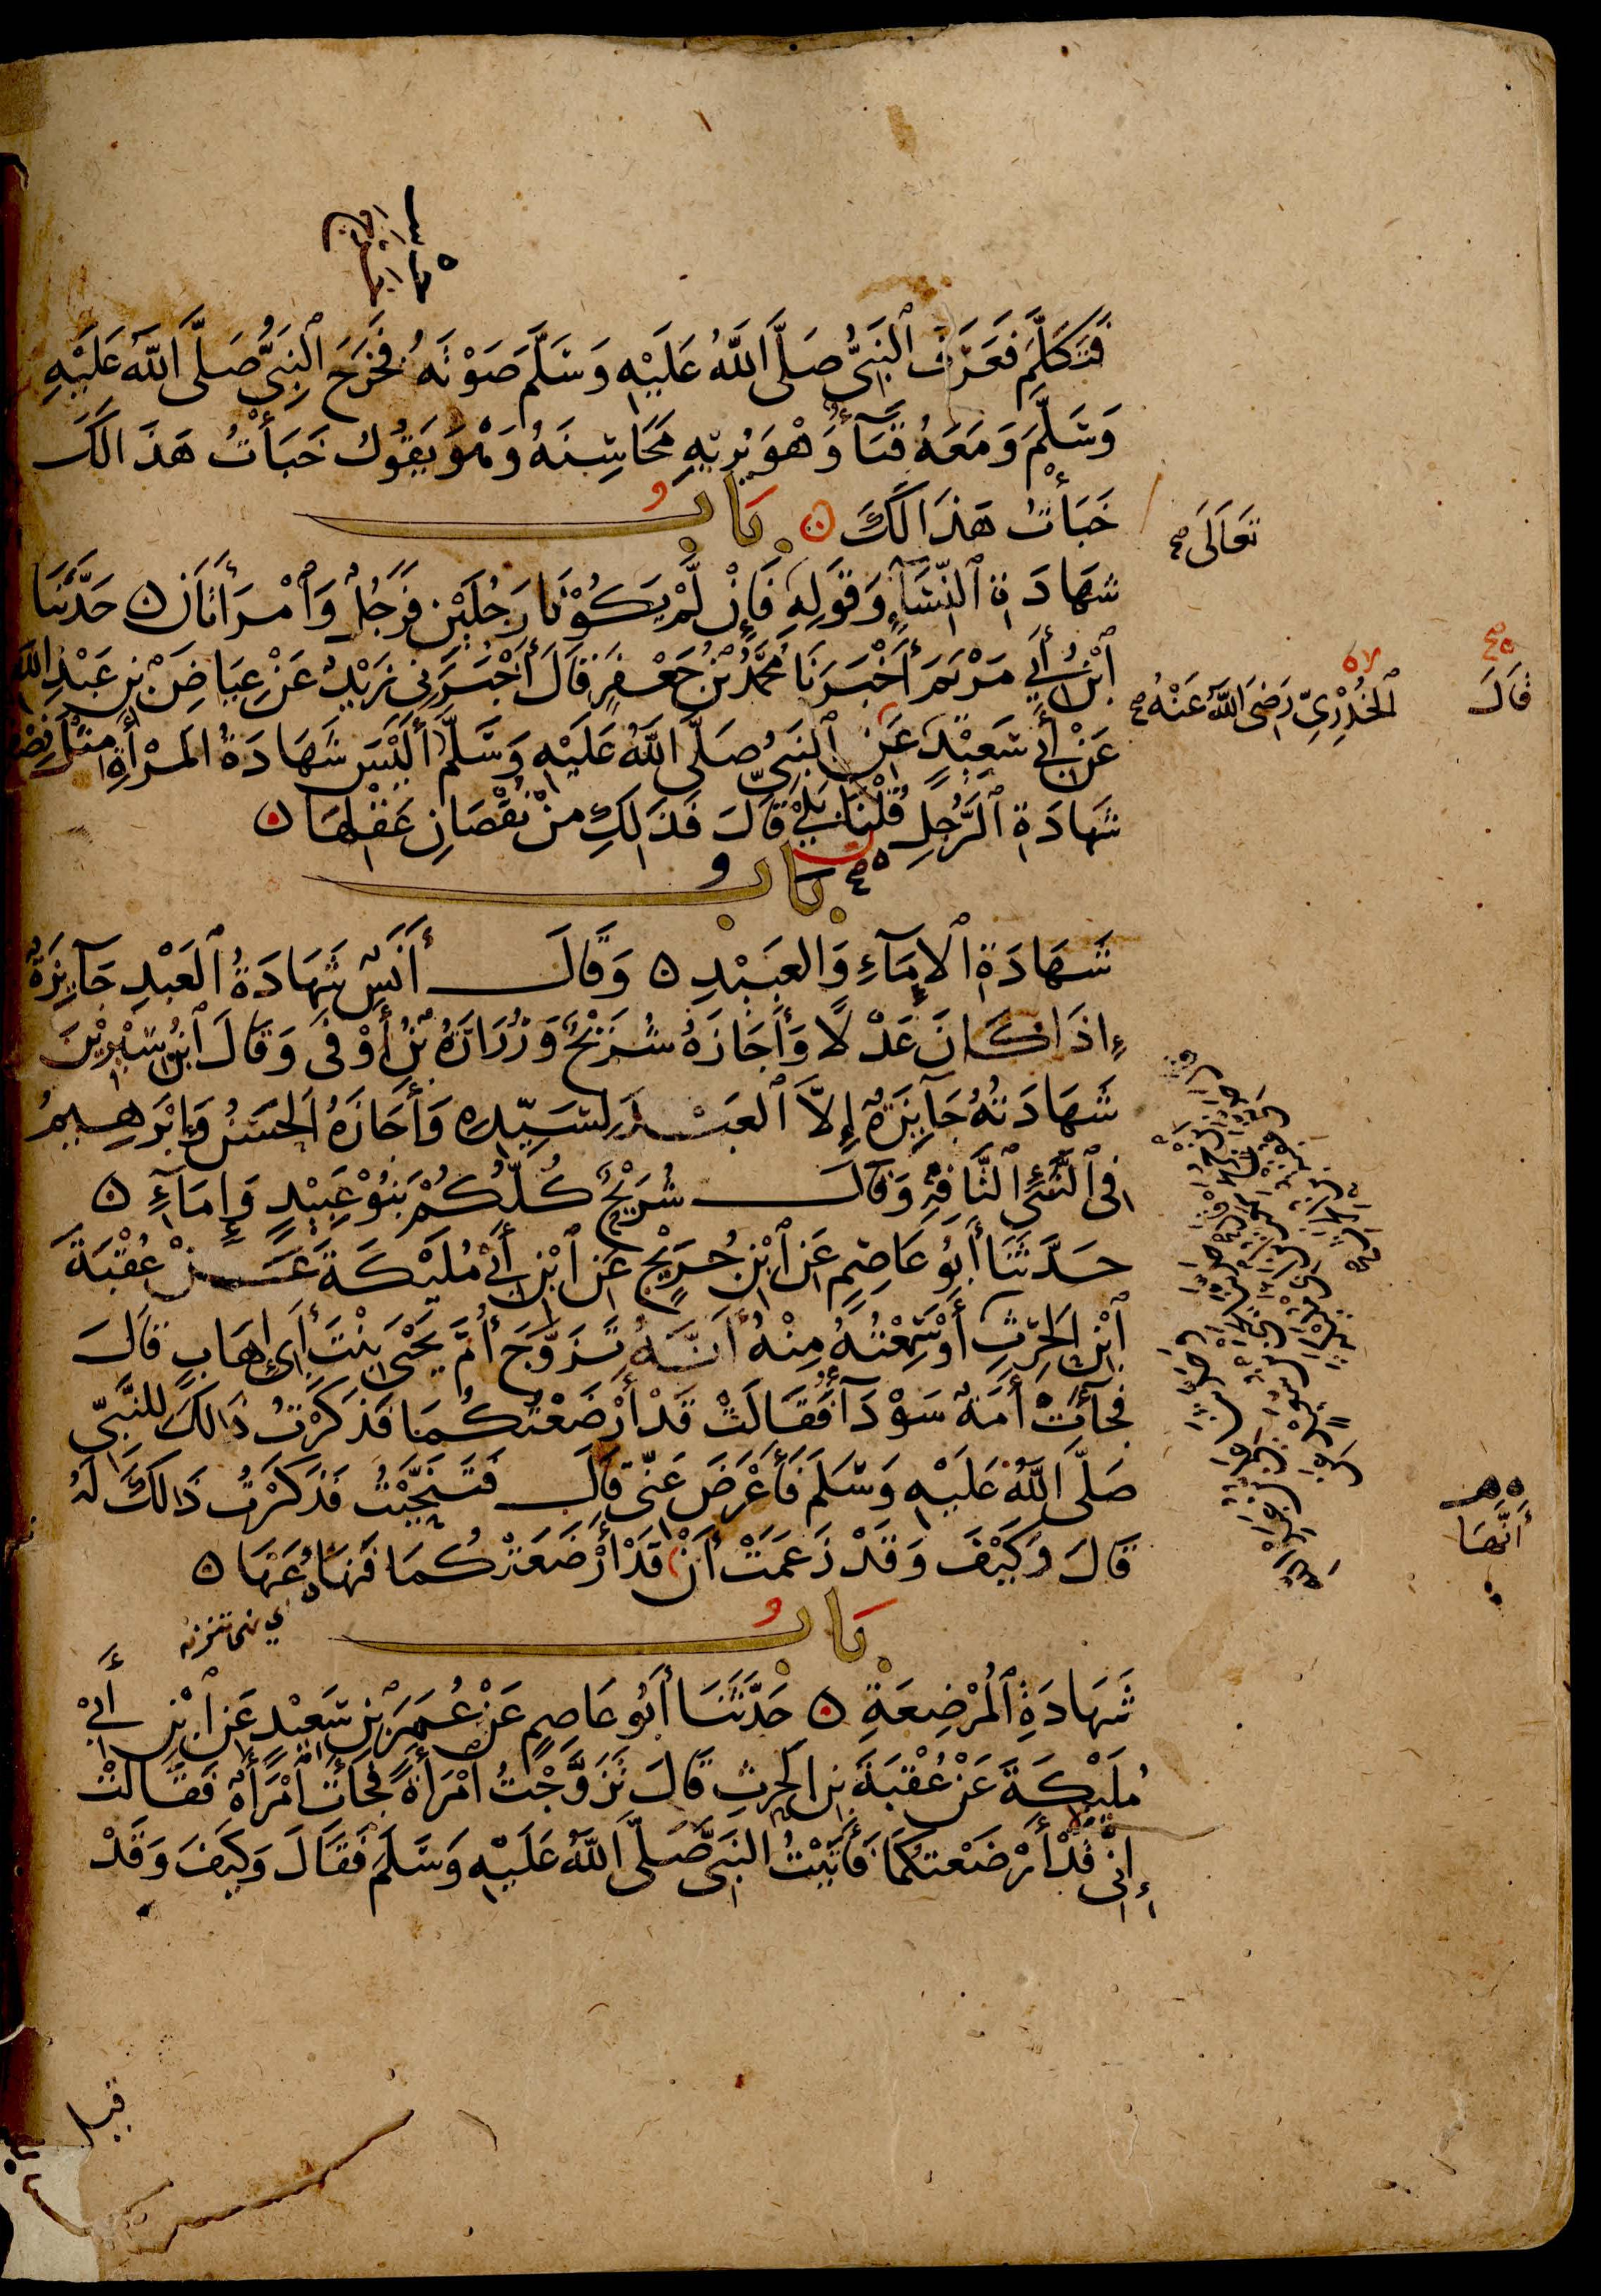 فَتَكَلَّمَ فَعَرَفَ ٱلنَّبِيُّ صَلَّى اللَّهُ عَلَيْهِ وَسَلَّمَ صَوْتَهُ فَخَرَجَ النَّبِيُّ صَلَّى اللَّهُ عَلَيْهِ
وَسَلَّمَ وَمَعَهُ قَبَآءٌ وَهْوَ يُرِيهِ مَحَاسِنَهُ وَهْوَ يَقُولُ خَبَأْتُ هَذَا لَكَ
خَبَأْتُ هَذَا لَكَ ۝ بَابُ
تَعَالَى صح
شَهَادَةِ ٱلنِّسَآءِ وَقَوْلِهِ فَإِنْ لَّمْ يَكُوْنَا رَجُلَيْنِ فَرَجُلٌ وَٱمْرَأَتَانِ ۝ حَدَّثَنَا
ٱبْنُ أَبِي مَرْيَمَ أَخْبَرَنَا مُحَمَّدُ بْنُ جَعْفَرٍ قَالَ أَخْبَرَنِي زَيْدٌ عَنْ عِيَاضِ بْنِ عَبْدِ اللَّهِ
الخُدْرِيِّ رَضِيَ اللَّهُ عَنْهُ صح
قَالَ
عَنْ أَبِي سَعِيْدٍ عَنِ ٱلنَّبِيِّ صَلَّى اللَّهُ عَلَيْهِ وَسَلَّمَ أَلَيْسَ شَهَادَةُ المَرْأَةِ مِثْلَ نِصْفِ
شَهَادَةِ ٱلرَّجُلِ قُلْنَا بَلَى قَالَ فَذَالِكِ مِنْ نُقْصَانِ عَقْلِهَا ۝
بَابُ
شَهَادَةِ ٱلإِمَآءِ وَالعَبِيْدِ ۝ وَقَالَ أَنَسٌ شَهَادَةُ ٱلعَبْدِ جَآئِزَةٌ
إِذَا كَانَ عَدْلًا وَأَجَازَهُ شُرَيْحٌ وَزُرَارَةُ بْنُ أَوْفَى وَقَالَ ٱبْنُ سِيْرِيْنَ
شَهَادَتُهُ جَآئِزَةٌ إِلَّا ٱلعَبْدَ لِسَيِّدِهِ وَأَجَازَهُ الحَسَنُ وَإِبْرَهِيمُ
فِي ٱلشَّيْءِ ٱلتَّافِهِ وَقَالَ شُرَيْحٌ كُلُّكُمْ بَنُوْ عَبِيْدٍ وَإِمَآءٍ ۝
حَدَّثَنَا أَبُو عَاصِمٍ عَنِ ٱبْنِ جُرَيْجٍ عَنِ ٱبْنِ أَبِي مُلَيْكَةَ عَنْ عُقْبَةَ
ٱبْنِ الحَرِثِ أَوْ سَمِعْتُهُ مِنْهُ أَنَّهُ تَزَوَّجَ أُمَّ يَحْيَى بِنْتَ أَبِي إِهَابٍ قَالَ
فَجَآءَتْ أَمَةٌ سَوْدَآءُ فَقَالَتْ قَدْ أَرْضَعْتُكُمَا فَذَكَرْتُ ذَالِكَ لِلنَّبِيِّ
صَلَّى اللَّهُ عَلَيْهِ وَسَلَّمَ فَأَعْرَضَ عَنِّي قَالَ فَتَنَحَّيْتُ فَذَكَرْتُ ذَالِكَ لَهُ
أَنَّهَا
قَالَ وَكَيْفَ وَقَدْ زَعَمَتْ أَنْ قَدْ أَرْضَعَتْكُمَا فَنَهَاهُ عَنْهَا ۝
بَابُ
شَهَادَةِ ٱلمُرْضِعَةِ ۝ حَدَّثَنَا أَبُو عَاصِمٍ عَنْ عُمَرَ بْنِ سَعِيْدٍ عَنِ ٱبْنِ أَبِي
مُلَيْكَةَ عَنْ عُقْبَةَ بْنِ الحَرِثِ قَالَ تَزَوَّجْتُ امْرَأَةً فَجَاءَتِ امْرَأَةٌ فَقَالَتْ
إِنِّي قَدْ أَرْضَعْتُكُمَا فَأَتَيْتُ النَّبِيَّ صَلَّى اللَّهُ عَلَيْهِ وَسَلَّمَ فَقَالَ وَكَيْفَ وَقَدْ
قيل